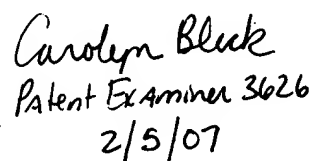 Carolyn Bleck
Patent Examiner 3626
2/5/07